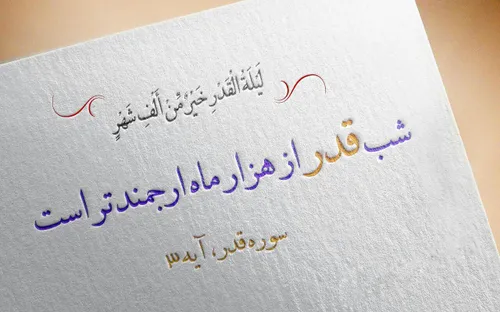 لَيْلَةُ الْقَدْرِ خَيْرٌ مِّنْ أَلْفِ شَهْرٍ
شب قدر از هزار ماه ارجمندتر است
سوره قدر، آیه ۳